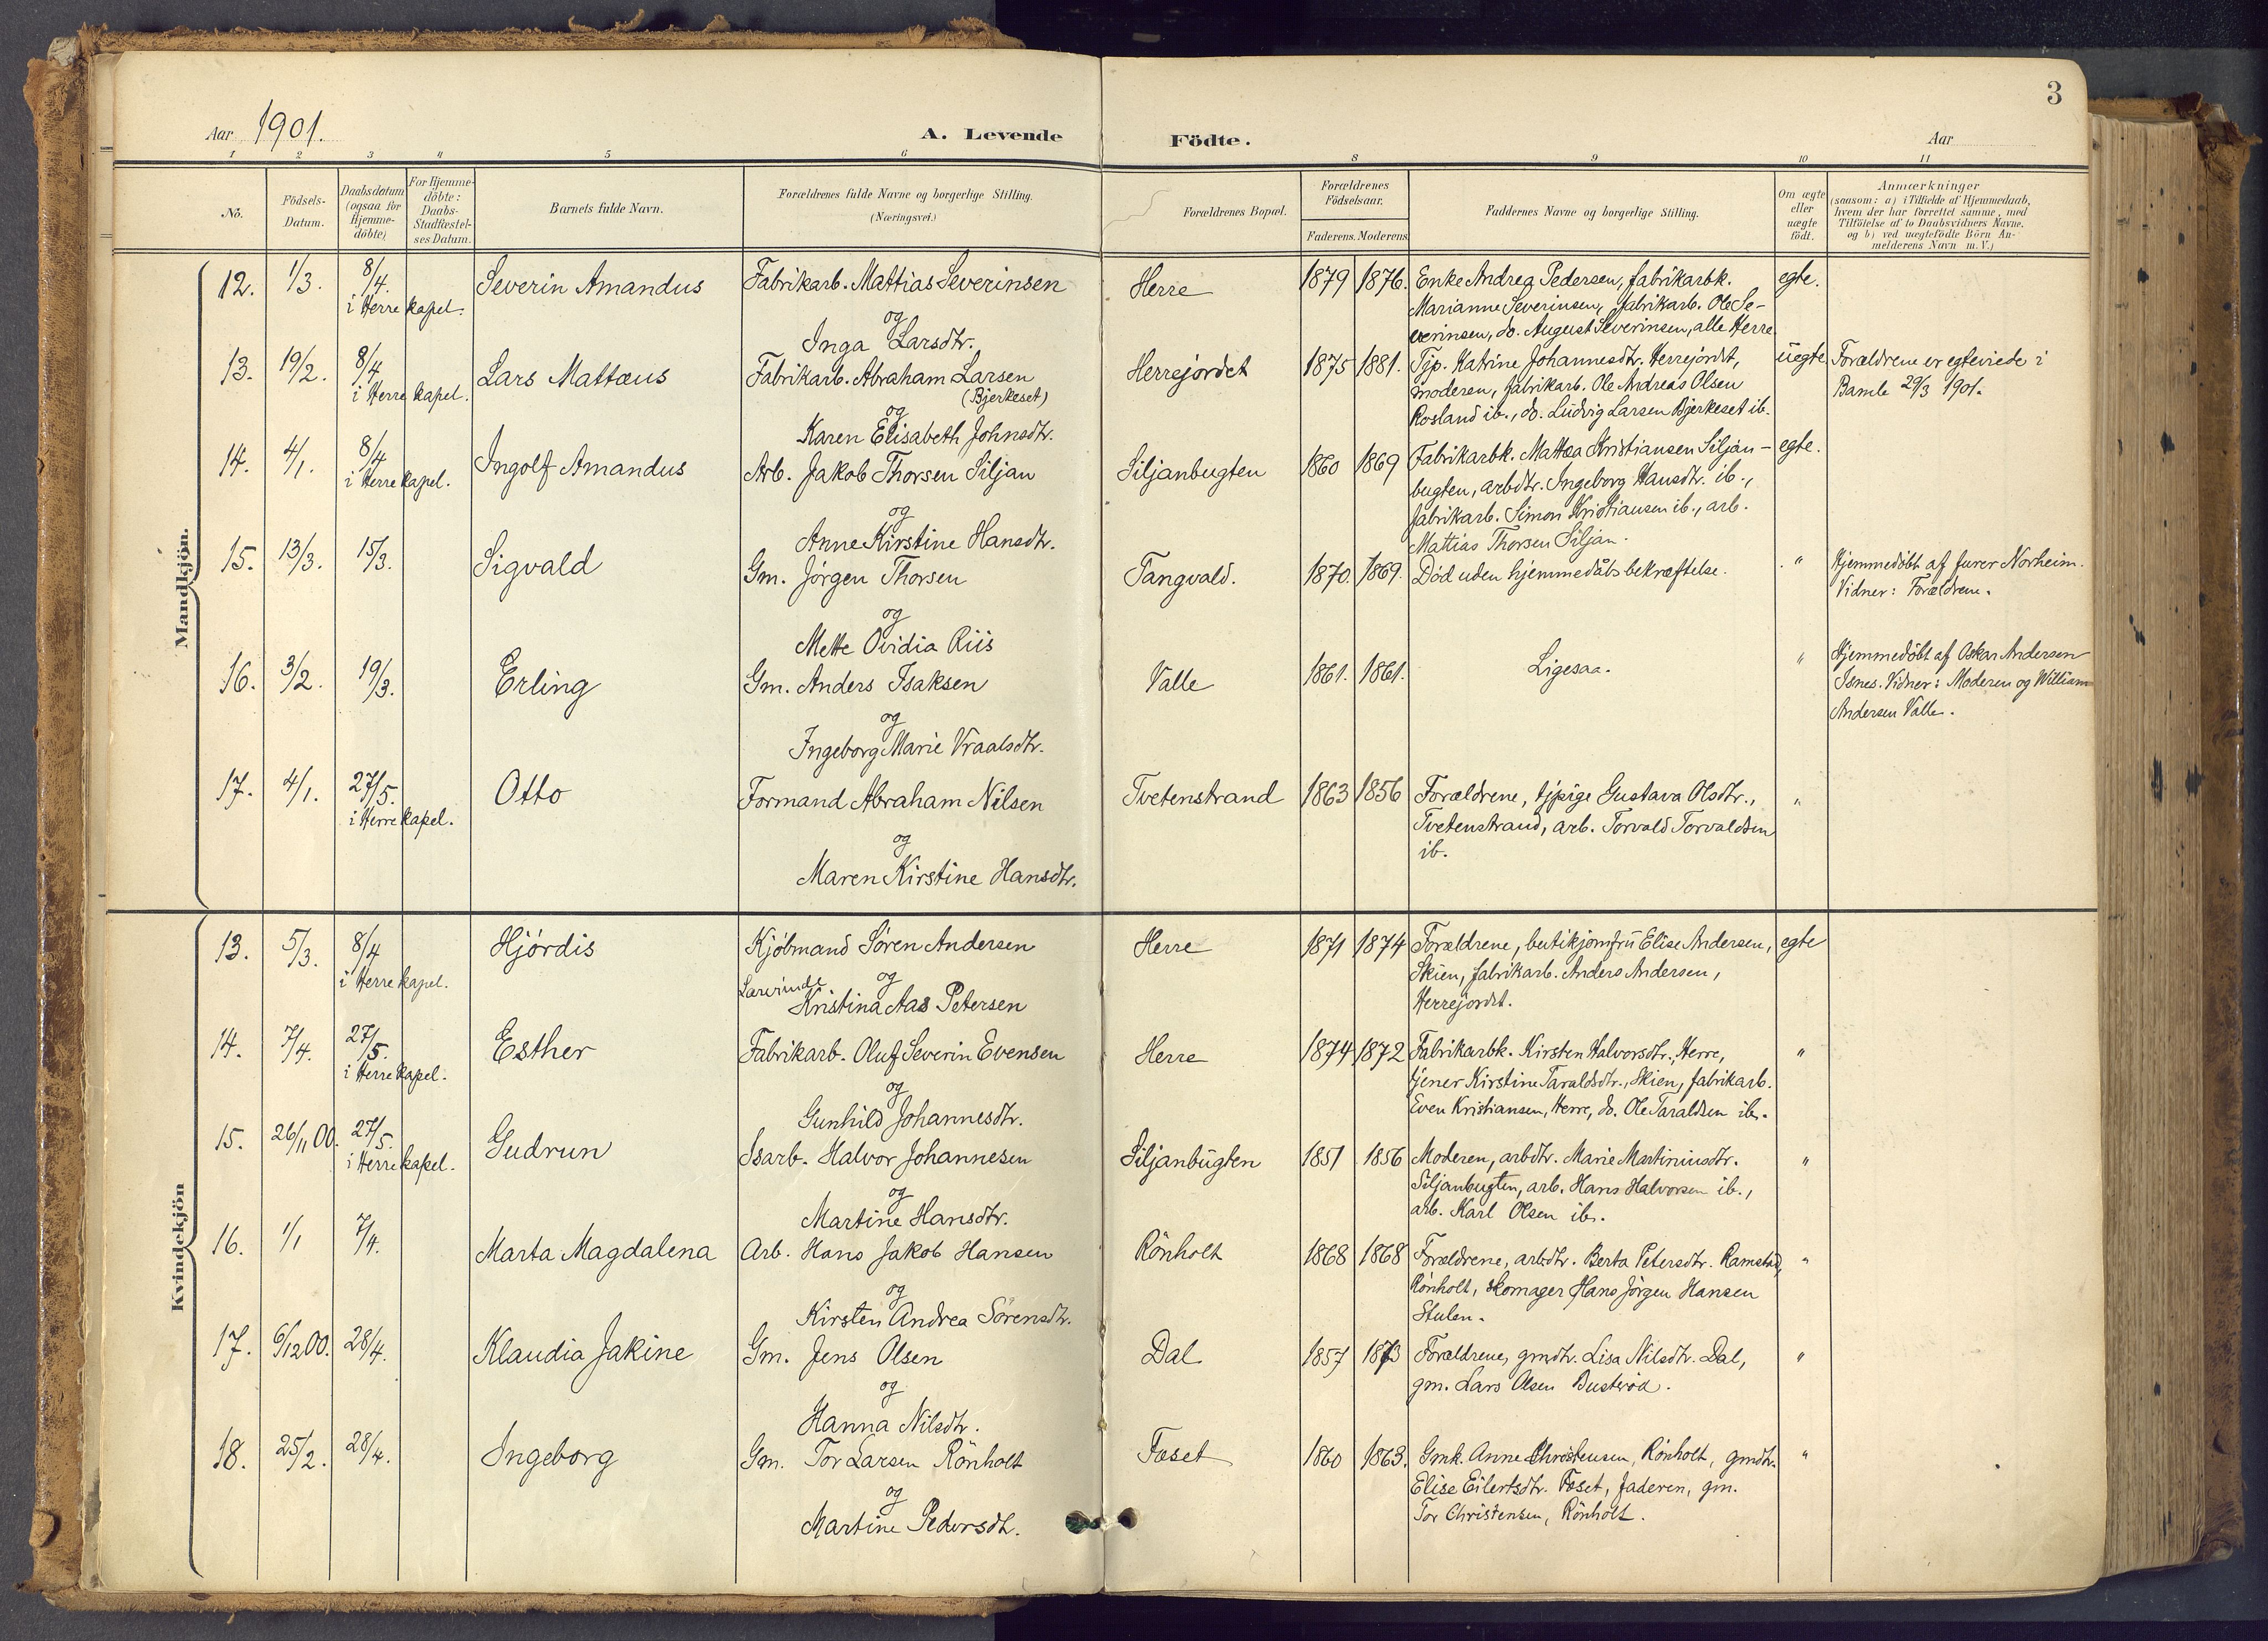 3
Aar 1901.
A. Levende Födte.
Aar
1 2 3 4 5 6 8 9 10 11
No.
Födsels-Datum.
Daabsdatum (ogsaa for Hjemme-döbte)
For Hjemme-döbte: Daabs-Stadfæstel-ses Datum.
Barnets fulde Navn.
Forældrenes fulde Navne og borgerlige Stilling. (Næringsvei.)
Forældrenes Bopæl.
Forældrenes Födselsaar.
Faderens. Moderens.
Faddernes Navne og borgerlige Stilling.
Om ægte eller uægte födt.
Anmærkninger
(saasom: a) i Tilfælde af Hjemmedaab,
hvem der har forrettet samme, med
Tilföielse af to Daabsvidners Navne,
og b) ved uægtefödte Börn An-
melderens Navn m. V.)
Mandkjön.
12. 1/3. 8/4. i Herre kapel. Severin Amandus
Fabrikarb. Mattias Severinsen
og
Inga Larsdtr.
Herre 1879 1876.
Enke Andrea Pedersen, fabrikarbk.
Marianne Severinsen, fabrikarb. Ole Se-
verinsen, do. August Severinsen, alle Herre.
egte.
13. 19/2. 8/4 i Herre kapel. Lars Mattæus
Fabrikarb. Abraham Larsen
(Bjerkeset)
og
Karen Elisabeth Johnsdtr.
Herrejordet 1875 1881.
Tjp. Katrine Johannesdtr. Herrejordt,
moderen, fabrikarb. Ole Andreas Olsen
Rosland ib., do. Ludvig Larsen Bjerkeset ib.
uegte.
Forældrene er egteviede i
Bamle 29/3 1901.
14. 4/1. 8/4 i Herre kapel. Ingolf Amandus
Arb. Jakob Thorsen Siljan
og
Anne Kirstine Hansdtr.
Siljanbugten 1860 1869
Fabrikarbk. Mattea Kristiansen Siljan-
bugten, arbdtr. Ingeborg Hansdtr. ib.,
fabrikarb. Simon Kristiansen ib., arb.
Mattias Thorsen Siljan.
egte.
15. 13/3. 15/3. Sigvald
Gm. Jörgen Thorsen
og
Mette Ovidia Riis
Tangvald. 1870. 1869.
Död uden hjemmedåbsbekræftelse.
"
Hjemmedöbt af furer Norheim.
Vidner: Forældrene.
16. 3/2. 19/3. Erling
Gm. Anders Isaksen
og
Ingeborg Marie Vraalsdtr.
Valle 1861. 1861.
Ligesaa.
"
Hjemmedöbt af Oskar Andersen
Isnes. Vidner: Moderen og William
Andersen Valle.
17. 4/1. 27/5. i Herre kapel. Otto
Formand Abraham Nilsen
og
Maren Kirstine Hansdtr.
Tvetenstrand 1863 1856
Forældrene, tjpige Gustava Olsdtr.,
Tvetenstrand, arb. Torvald Torvaldsen
ib.
"
Kvindekjön
13. 5/3. 8/4 i Herre kapel. Hjördis
Kjöbmand Sören Andersen
og
Lærerinde Kristina Aas Petersen
Herre 1871 1874
Forældrene, butikjomfru Elise Andersen,
Skien, fabrikarb. Anders Andersen,
Herrejordet.
egte
14. 7/4. 27/5. i Herre kapel. Esther
Fabrikarb. Oluf Severin Evensen
og
Gunhild Johannesdtr.
Herre 1874 1872
Fabrikarbk. Kirsten Halvorsdtr., Herre,
tjener Kirstine Taraldsdtr., Skien, fabrikarb.
Even Kristiansen, Herre, do. Ole Taraldsen ib.
"
15. 26/11 00. 27/5. i Herre kapel. Gudrun
Isarb. Halvor Johannesen
og
Martine Hansdtr.
Siljanbugten 1851 1856
Moderen, arbdtr. Marie Martiniusdtr.
Siljanbugten, arb. Hans Halvorsen ib.,
arb. Karl Olsen ib.
"
16. 1/1 7/4. Marta Magdalena
Arb. Hans Jakob Hansen
og
Kirsten Andrea Sörensdtr.
Rönholt 1868 1868
Forældrene, arbdtr. Berta Petersdtr. Ramstad,
Rönholt, skomager Hans Jörgen Hansen
Stulen.
"
17. 6/12 00. 28/4. Klaudia Jakine
Gm. Jens Olsen
og
Hanna Nilsdtr.
Dal 1857 1873
Forældrene, gmdtr. Lisa Nilsdtr. Dal,
gm. Lars Olsen Busteröd.
"
18. 25/2. 28/4. Ingeborg
Gm. Tor Larsen Rönholt
og
Martine Pedersdt.
Foset 1860 1863.
Gmk. Anne Christensen, Rönholt, gmdtr.
Elise Eilertsdtr. Foset, faderen, gm.
Tor Christensen, Rönholt.
"